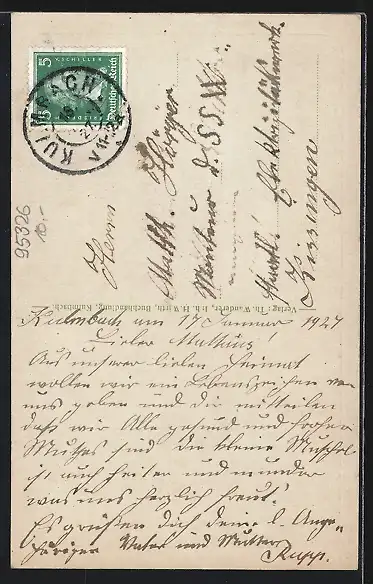 5
F. SCHILLER
Deutsches Reich
KULMBACH
27
95326
10.-
Herrn
Matth. Hörger
Monteur d. S.S.W.
Elektrizitätswerk
Kissingen
Verlag: Th. Wanderer, Inh. H. Wirth, Buchhandlung, Kulmbach.
Kulmbach am 17 Januar 1927
Lieber Mathäus!
Aus unserer lieben Heimat
wollen wir ein Lebenszeichen von
uns geben und dir mitteilen
daß wir Alle gesund und frohen
Muthes sind die kleine Muschel
ist auch heiter und munder
was uns herzlich freut.
Es grüßen dich deine l. Ange-
hörigen Vater und Mutter
Rupp.